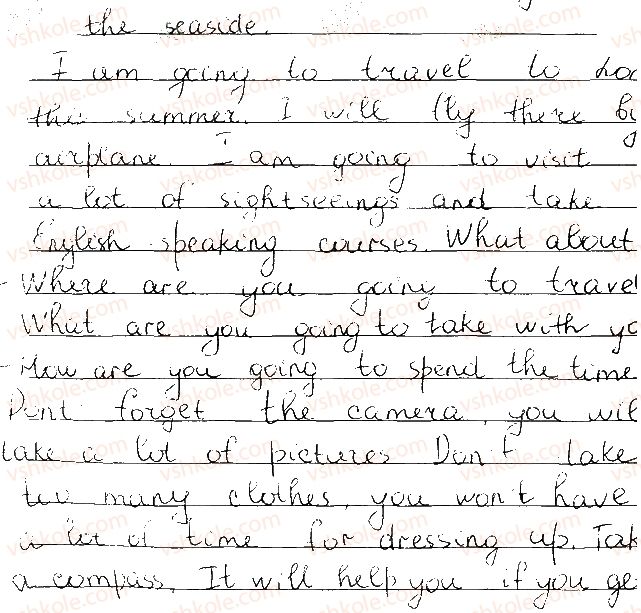 the seaside.
I am going to travel to Lo
this summer. I will fly there by
airplane. I am going to visit
a lot of sightseeings and take
English speaking courses. What about
- Where are you going to travel
What are you going to take with yo
- How are you going to spend the time
Dont forget the camera, you wil
take a lot of pictures Don't take
too many clothes, you won't have
a lot of time for dressing up. Tak
a compass. It will help you if you ge